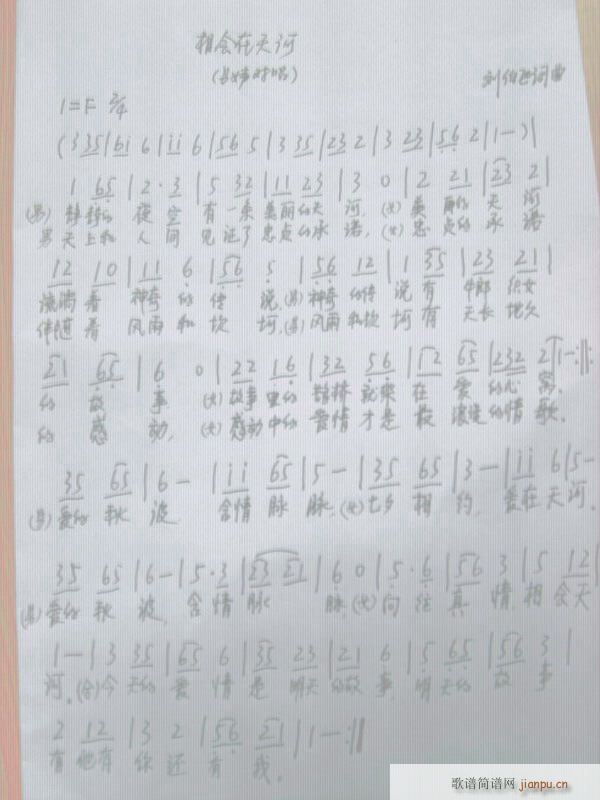 相会在天河
(男女对唱)
刘伯延词曲
1=F 2/4
(3 35|6i 6|ii 6|56 5|3 35|23 2|3 23|56 2|1-)|
1 65|2·3|5 32|11 23|3 0|2 21|23 2|
(男)静静的 夜空 有一条 美丽的天 河,(女)美 丽的 天 河
男天上和 人间 见证了 忠贞的承 诺,(女)忠 贞的 承 诺
12 10|11 6|56 5|56 12|1 35|23 21|
流淌着 神奇的传 说(男)神奇的传 说有 牛郎 织女
伴随着 风雨和坎 坷,(男)风雨和坎 坷有 天长 地久
21 65|6 0|22 16|32 56|12 65|232 2 1-:||:
的 故 事 (女)故事里的 鹊桥 就架 在 爱 的心 窝.
的 感 动,(女)感动中的 爱情 才是 最 浪漫的情 歌.
35 65|6-|ii 65|5-|35 65|3-|ii 6|5-
(男)爱的 秋 波 含情 脉 脉,(女)七夕 相 约, 爱在 天河.
35 65|6-|5·3|23 21|6 0|5·6|56 3|5 12|
(男)爱的 秋 波, 含情 脉 脉,(女)向往 真 情, 相会天
1-|3 35|65 6|35 23|21 6|5 65|56 3|
河.(合)今 天的 爱 情 是 明天的故 事, 明 天的 故 事
2 12|3 2|56 21|1-:||
有 他有 你 还 有 我.
歌谱简谱网 jianpu.cn